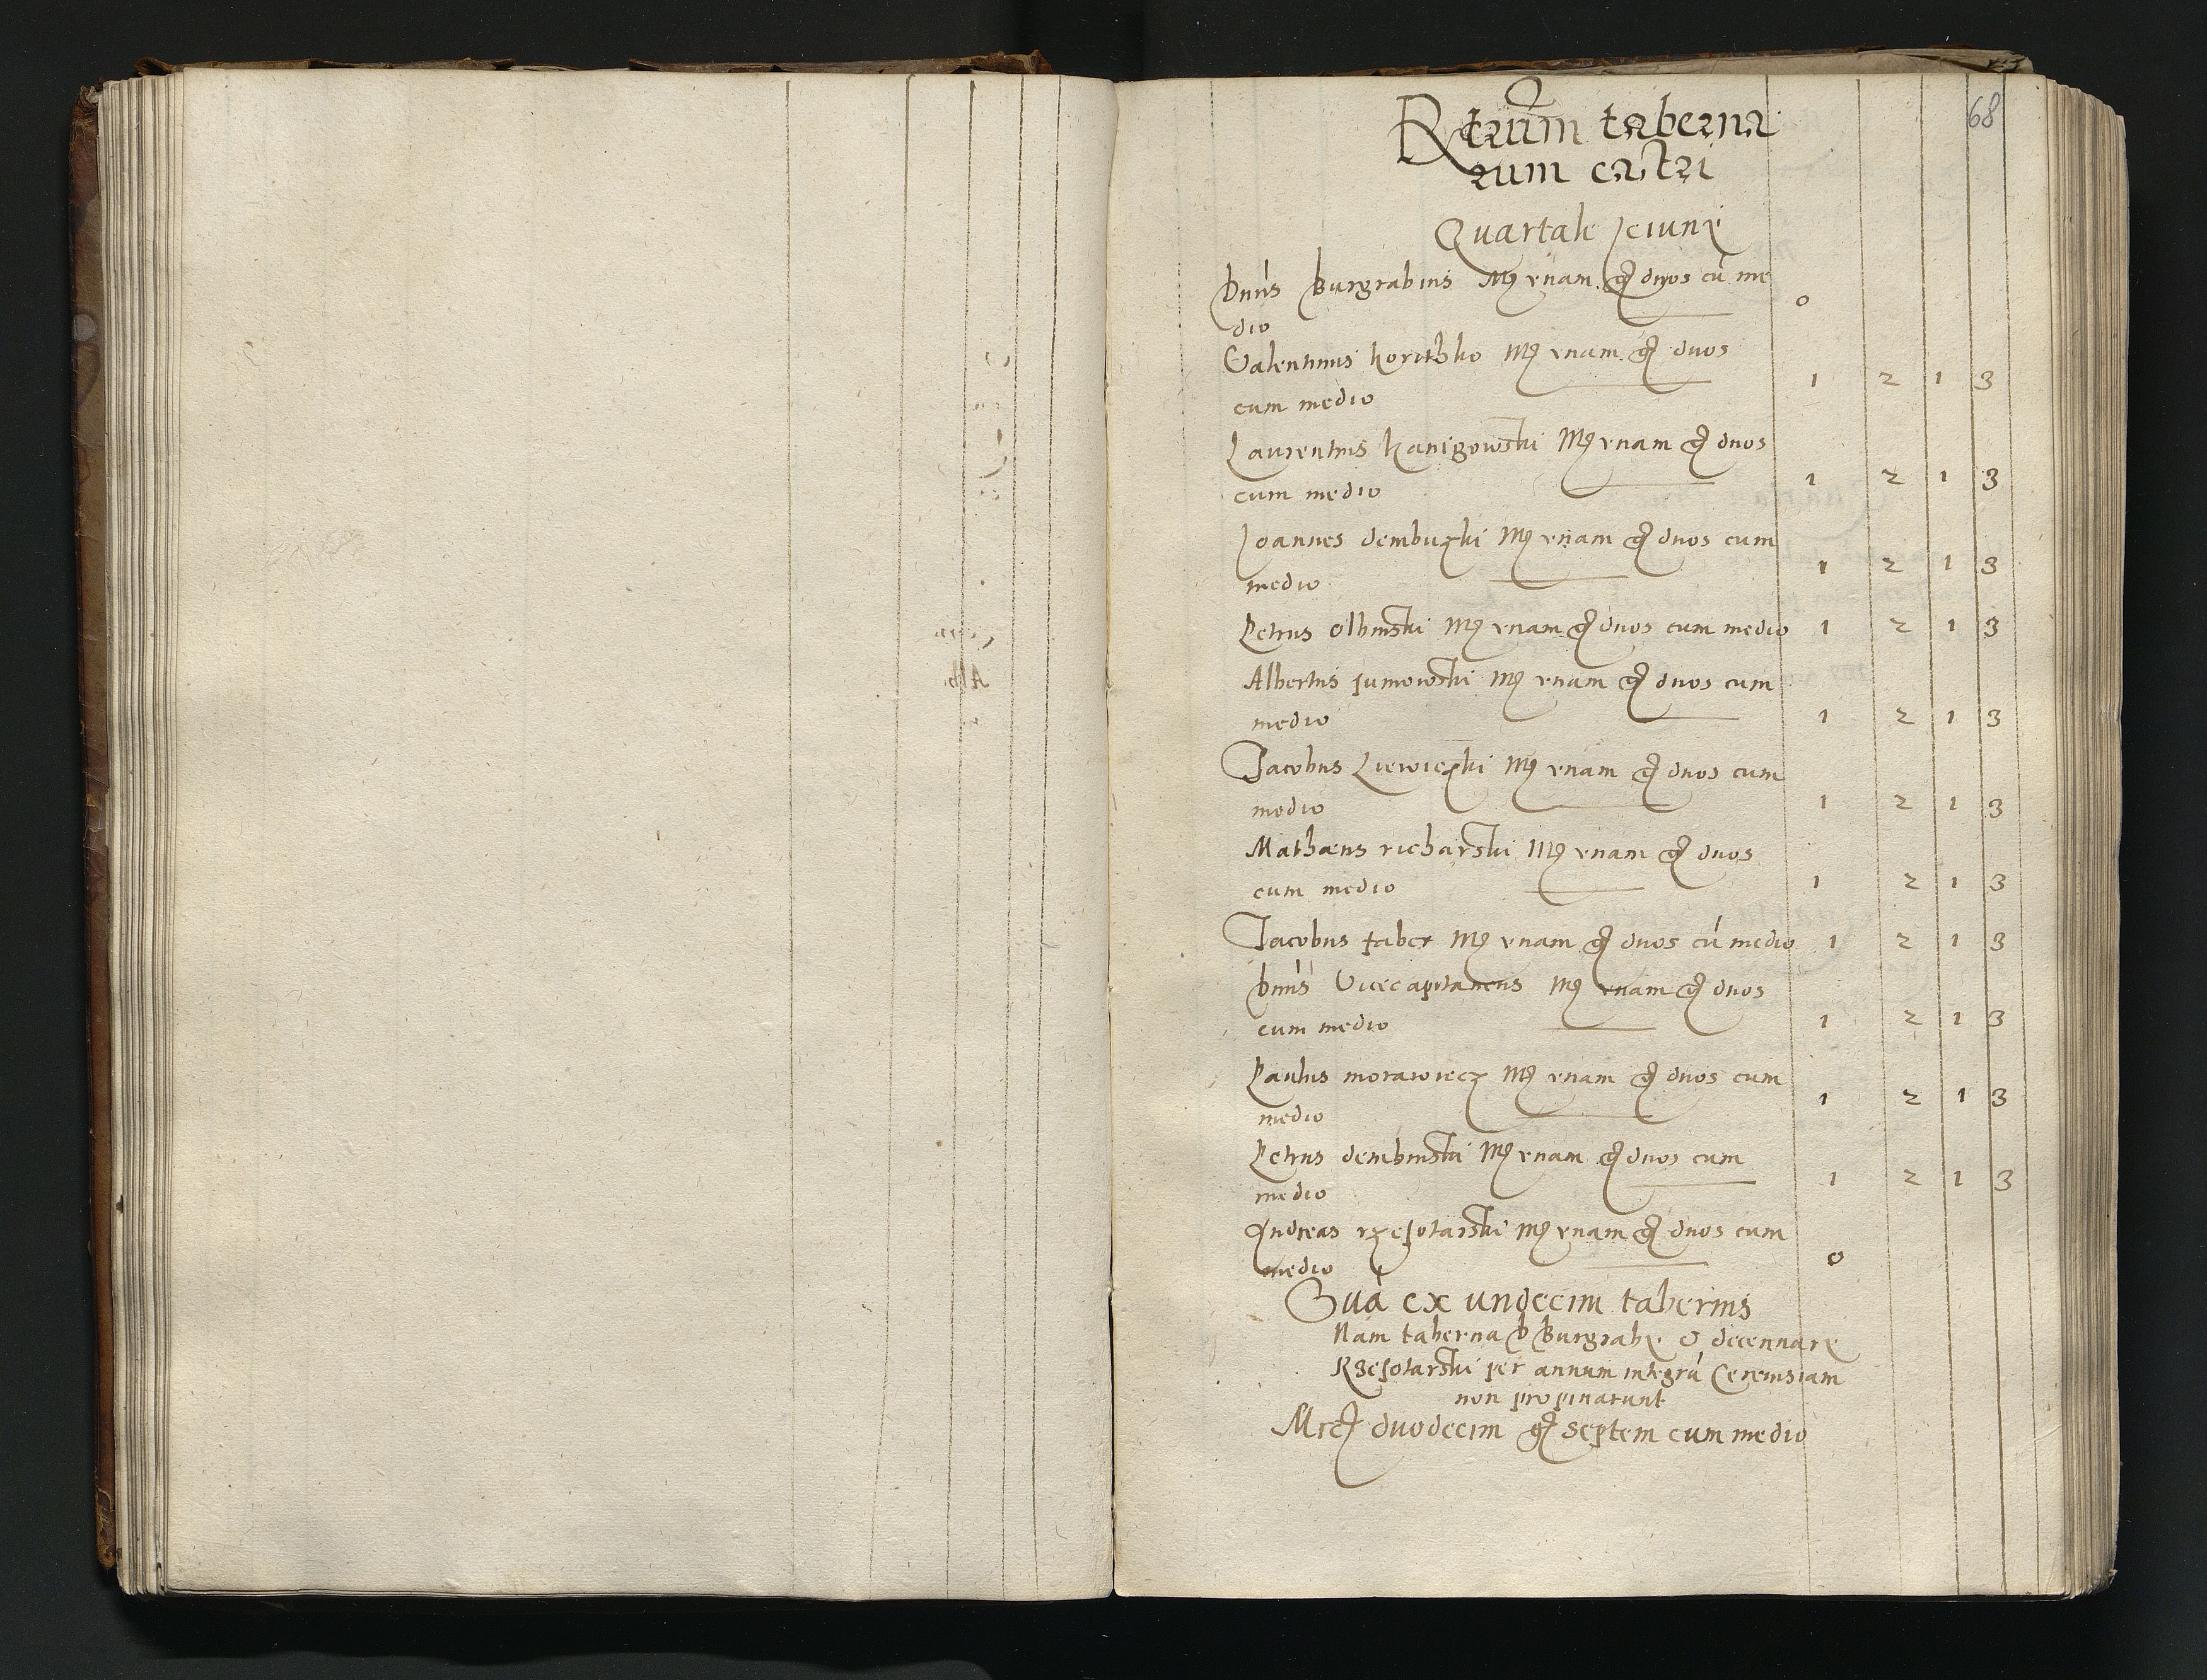 68
taberna
rum castri
Quartale Jeiunÿ
Dnus Burgrabius Mrc vnam gr duos cū me
dio 0
Valentinus korithko Mrc vnam gr duos
cum medio 1 2 1 3
Laurentius kanigowski Mrc vnam gr duos
cum medio 1 2 1 3
Joannes dembuzki Mrc vnam gr duos cum
medio 1 2 1 3
Petrus olbinski Mrc vnam gr duos cum medio 1 2 1 3
Albertus sumowski Mrc vnam gr duos cum
medio 1 2 1 3
Jacobus Liewiczki Mrc vnam gr duos cum
medio 1 2 1 3
Mathæus richarski Mrc vnam gr duos
cum medio 1 2 1 3
Jacobus faber Mrc vnam gr duos cū medio 1 2 1 3
Dnus Vicecapitaneus Mrc vnam gr duos
cum medio 1 2 1 3
Paulus morawiecz Mrc vnam gr duos cum
medio 1 2 1 3
Petrus dembinski Mrc vnam gr duos cum
medio 1 2 1 3
Andreas rzesotarski Mrc vnam gr duos cum
medio 0
Suā ex undecim tabernis
Nam taberna D Burgrabÿ & decennarÿ
Rzesotarski per annum integrū Ceremsiam
non propinarunt
Mrc duodecim gr septem cum medio